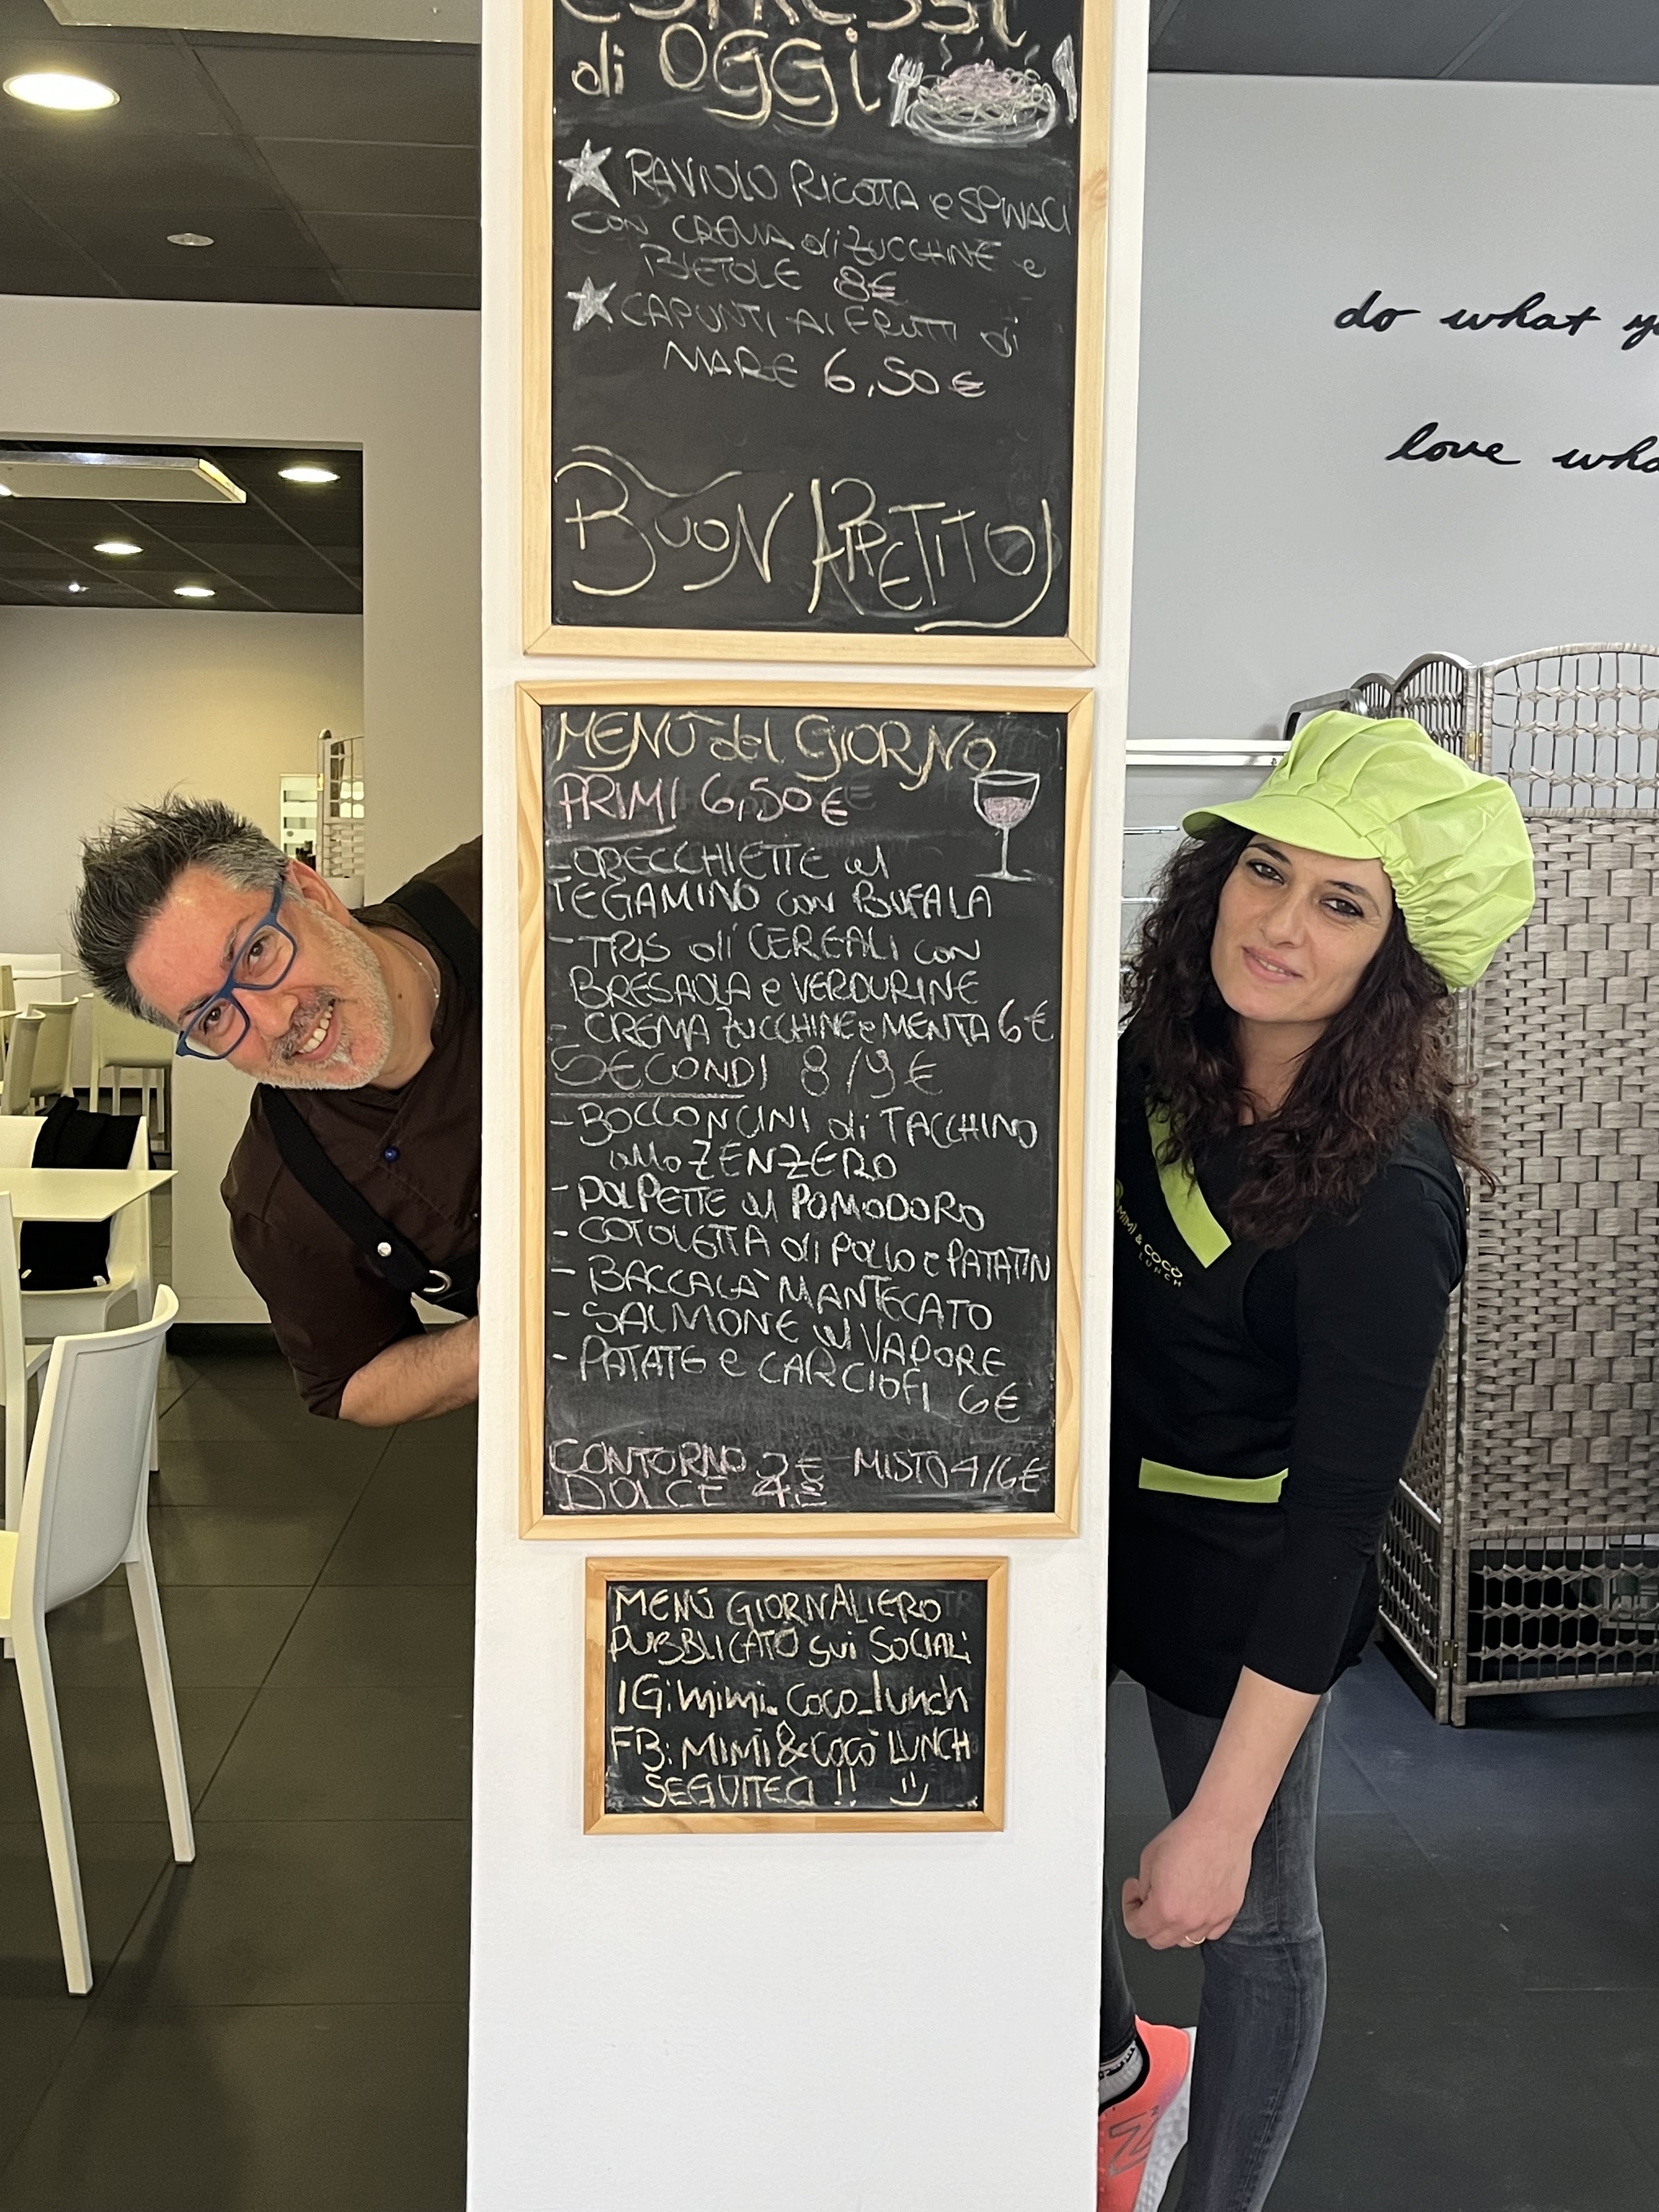 espressi
di OGGi
RAVIOLO RiCOTTA e SPINACI
CON CREMA di ZUCCHINE e
BIETOLE 8€
CAPUNTI AI FRUTTI di
MARE 6,50€
BUON APPETITO
MENÙ del GIORNO
PRIMI 6,50€
-ORECCHIETTE al
TEGAMINO con BUFALA
-TRIS di CEREALI con
BRESAOLA e VERDURINE
- CREMA ZUCCHINE e MENTA 6€
SECONDI 8/9€
-BOCCONCINI di TACCHINO
allo ZENZERO
-POLPETTE al POMODORO
-COTOLETTA di POLLO e PATATIN
-BACCALÀ MANTECATO
-SALMONE al VAPORE
-PATATE e CARCIOFI 6€
CONTORNO 3€ MISTO 4/6€
DOLCE 4€
MENÙ GIORNALIERO
PUBBLICATO sui SOCIAL:
IG: mimi_coco_lunch
FB: MIMÌ&COCÒ LUNCH
SEGUITECI!! :)
do what yo
love wha
MIMÌ & COCÒ
LUNCH
N